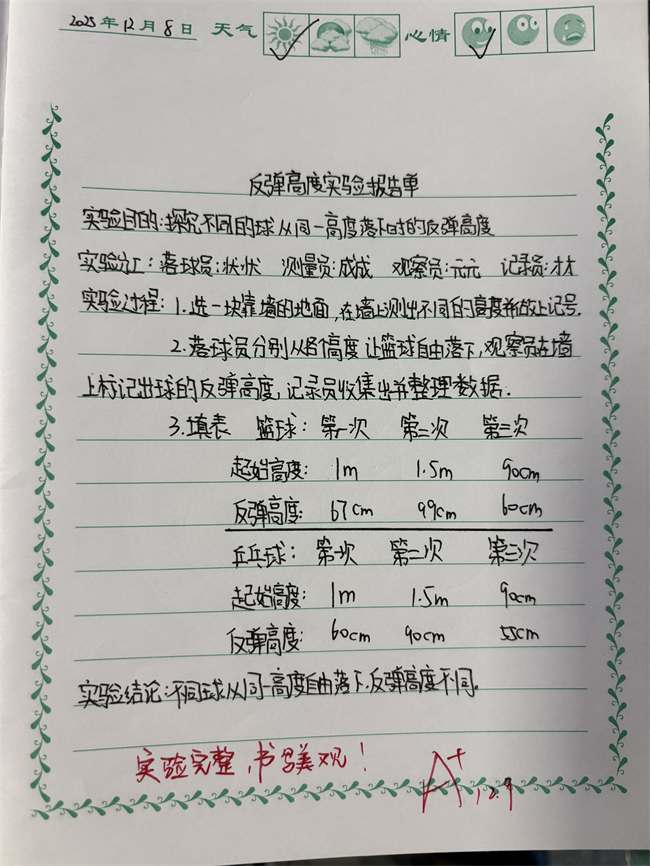 2025年12月8日 天气 心情
反弹高度实验报告单
实验目的:探究不同的球从同一高度落下时的反弹高度
实验分工:落球员:状状 测量员:成成 观察员:元元 记录员:才才
实验过程:1.选一块靠墙的地面,在墙上测出不同的高度并做上记号.
2.落球员分别从各个高度让篮球自由落下,观察员在墙
上标记出球的反弹高度,记录员收集出并整理数据.
3.填表 篮球:第一次 第二次 第三次
起始高度: 1m 1.5m 90cm
反弹高度: 67cm 99cm 60cm
乒乓球:第一次 第二次 第三次
起始高度: 1m 1.5m 90cm
反弹高度: 60cm 90cm 55cm
实验结论:不同球从同一高度自由落下,反弹高度不同。
实验完整,书写美观! A+ 12.9